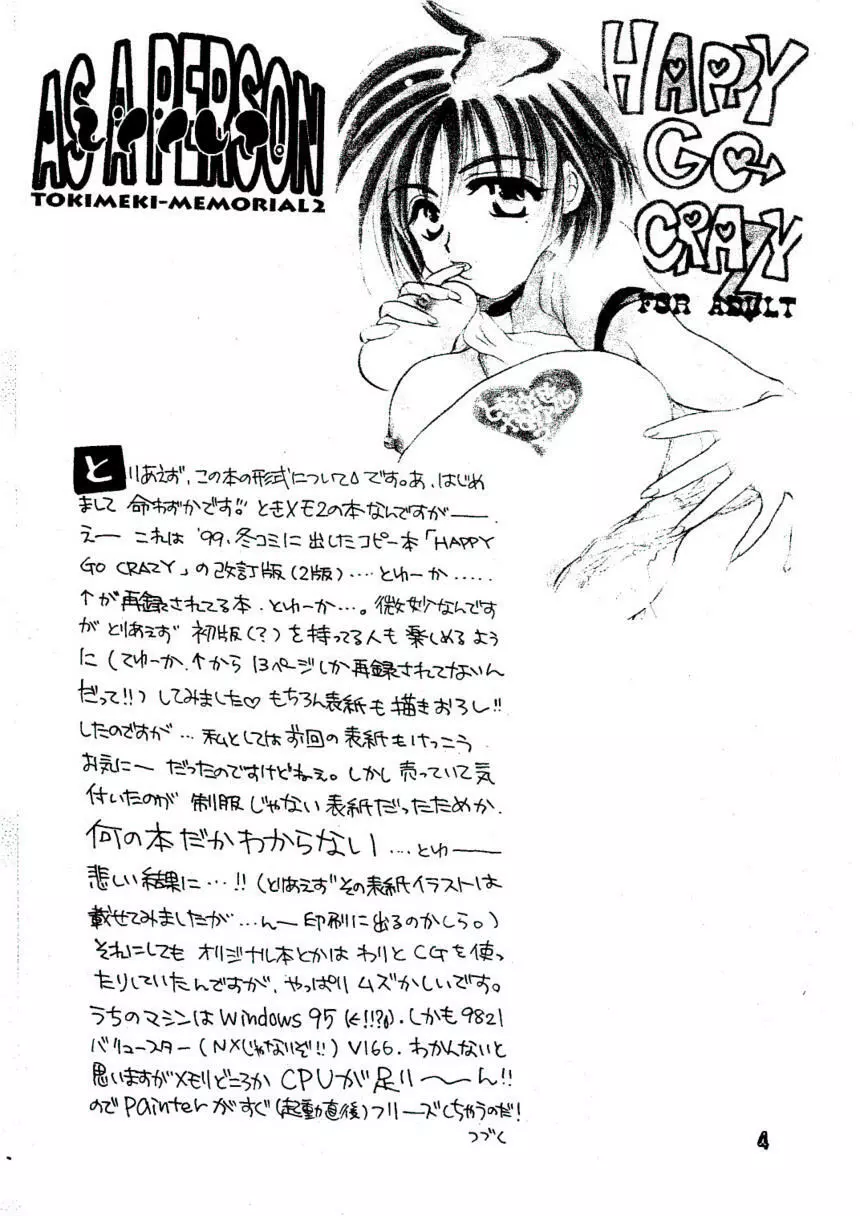 AS A PERSON
TOKIMEKI-MEMORIAL2
HAPPY
GO
CRAZY
FOR ADULT
とりあえず、この本の形式についてΔです。あ、はじめ
まして 命わずかです。ときメモ2の本なんですが――
えー これは '99.冬コミに出したコピー本「HAPPY
GO CRAZY」の改訂版(2版)‥‥とゆーか‥‥.
↑が再録されてる本.とゆーか…。微妙なんです
が とりあえず 初版(?)を持ってる人も楽しめるよう
に(てゆーか.↑から13ページしか再録されてないん
だって!!)してみました♡ もちろん表紙も描きおろし!!
したのですが… 私としては前回の表紙もけっこう
お気にー だったのですけどねぇ。しかし売っていて気
付いたのが 制服じゃない表紙だったためか.
何の本だかわからない‥‥とゆ――
悲しい結果に…!!(とりあえずその表紙イラストは
載せてみましたが…んー印刷に出るのかしら。)
それにしても オリジナル本とかは わりとCGを使っ
たりしていたんですが、やっぱり ムズかしいです。
うちのマシンはWindows95(←!!?).しかも9821
バリュースター(NXじゃないぞ!!)V166.わかんないと
思いますがメモリどころか CPUが足り〜〜ん!!
のでPainterがすぐ(起動直後)フリーズしちゃうのだ!
つづく
4